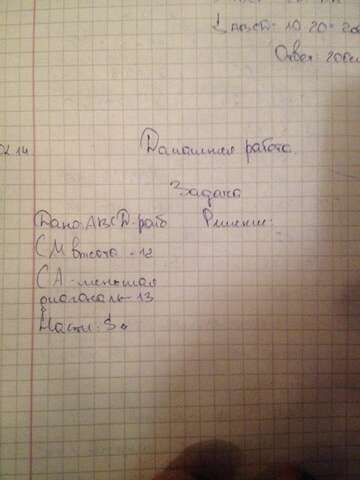 S ABCD = 10 · 20 = 200
Ответ: 200см
02.14
Домашняя работа.
Задача
Дано: ABCD-ромб Решение:
CM высота - 12
CA - меньшая
диагональ - 13
Найти: S